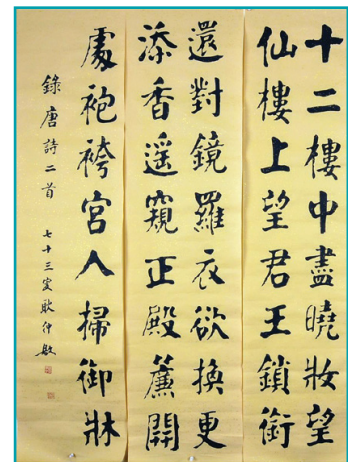 十二樓中盡曉妝望
仙樓上望君王鎖銜
還對鏡羅衣欲換更
添香遥窺正殿簾開
處袍袴宮人掃御牀
錄唐詩二首 七十三叟耿仲敏